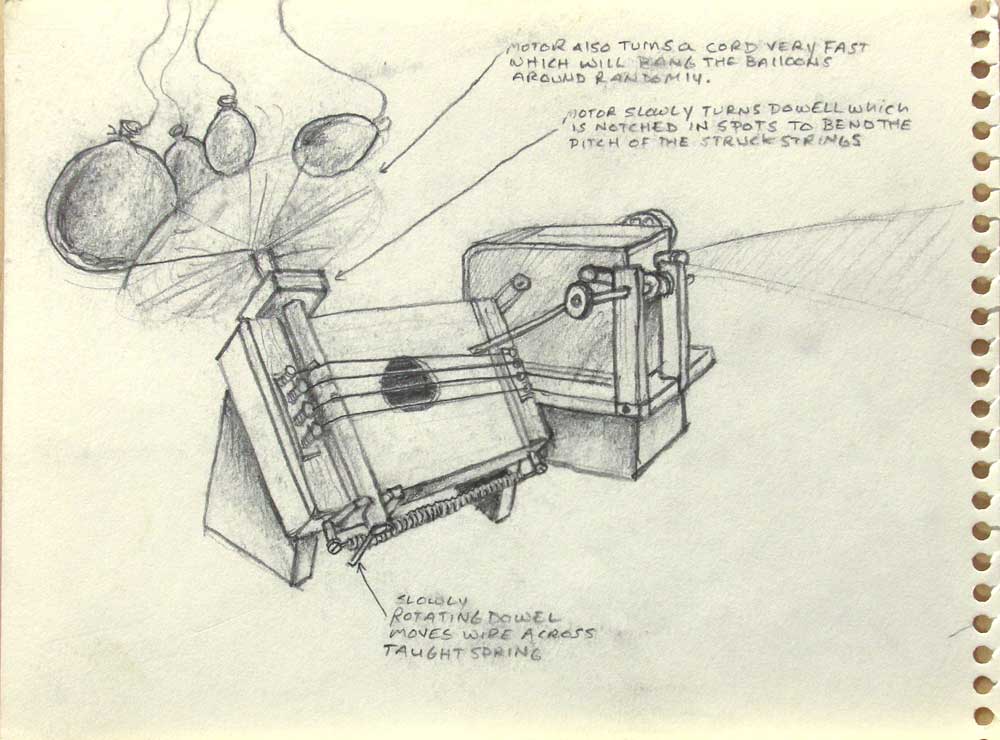 MOTOR ALSO TURNS A CORD VERY FAST
WHICH WILL BANG THE BALLOONS
AROUND RANDOMLY.
MOTOR SLOWLY TURNS DOWELL WHICH
IS NOTCHED IN SPOTS TO BEND THE
PITCH OF THE STRUCK STRINGS
SLOWLY
ROTATING DOWEL
MOVES WIRE ACROSS
TAUGHT SPRING